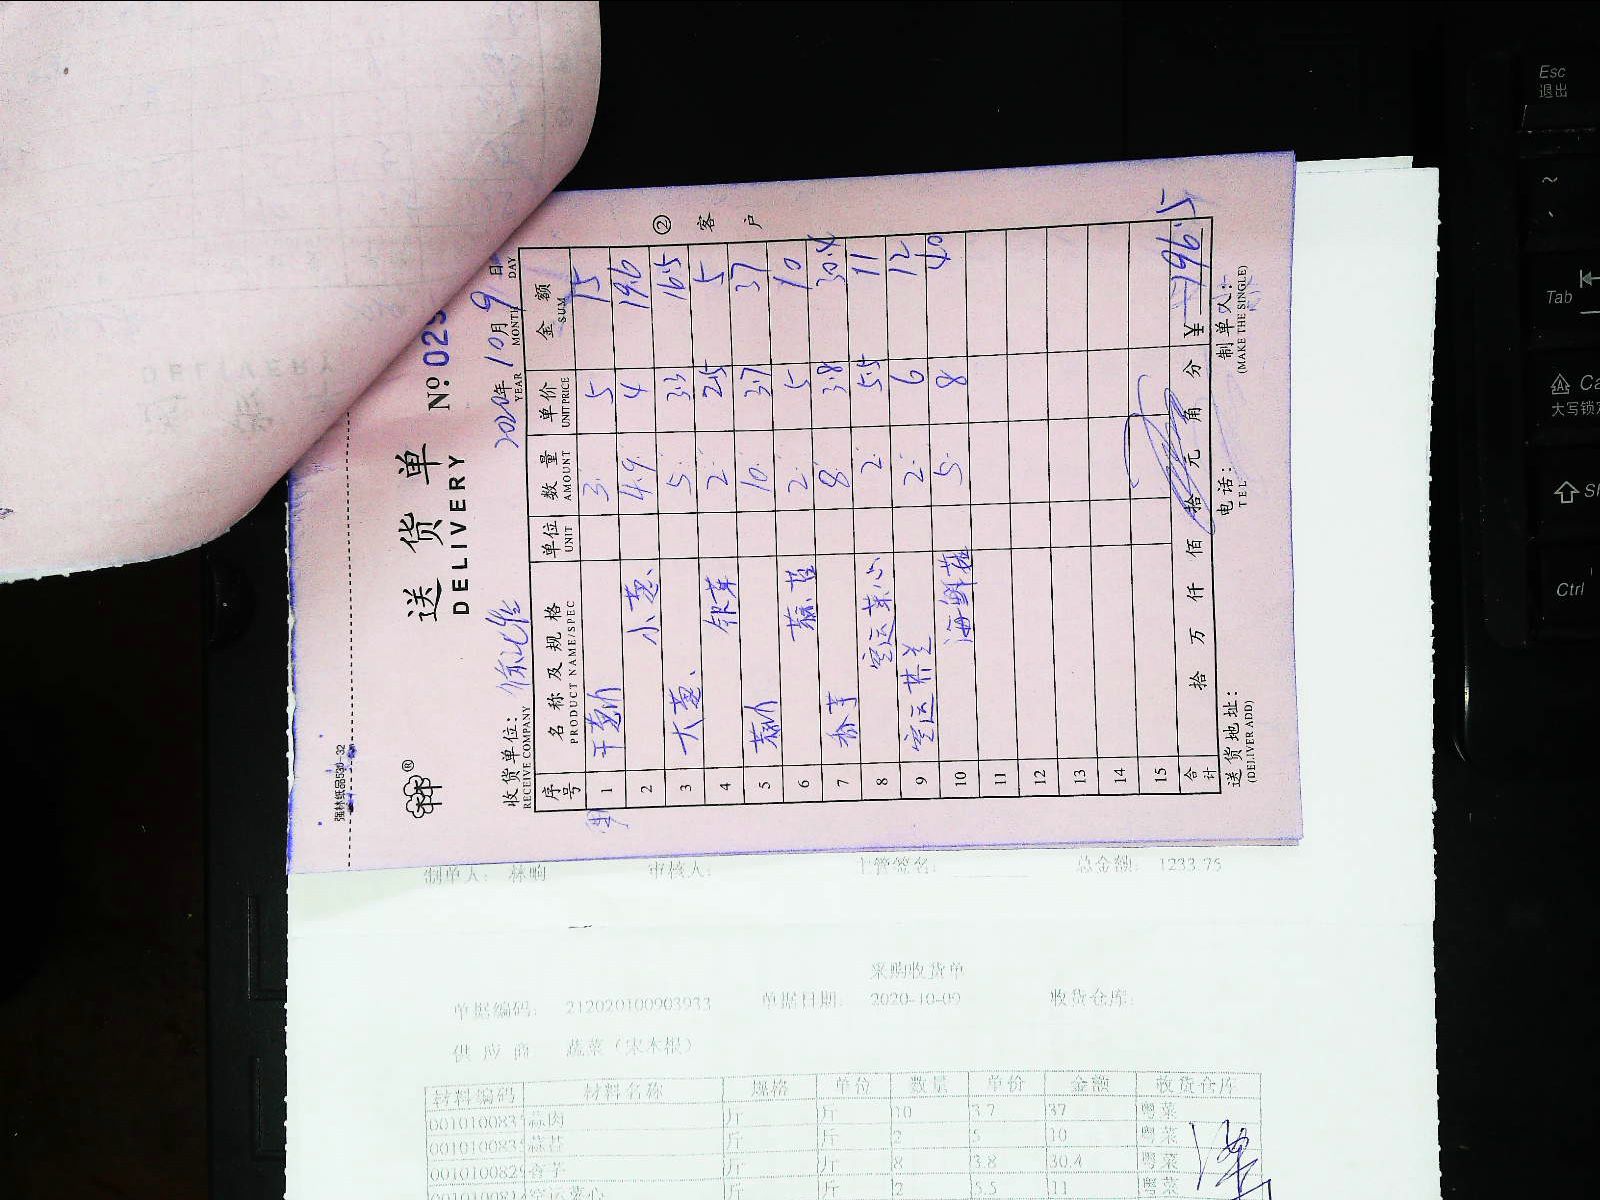 强林纸品530-32
送货单
DELIVERY
№: 029
② 客户
收货单位:
RECEIVE COMPANY
2020年 10月 9日
YEAR MONTH DAY
序号 名称及规格 单位 数量 单价 金额
PRODUCT NAME/SPEC UNIT AMOUNT UNIT PRICE SUM
1 干葱肉 3. 5 15
2 小葱、 4.9. 4 19.6
3 大葱、 5. 3.3 16.5
4 银芽 2. 2.5 5
5 蒜肉 10. 3.7 37
6 蒜苔 2. 5 10
7 香芋 8. 3.8 30.4
8 空运菜心 2. 5.5 11
9 空运芥兰 2. 6 12
10 海鲜菇 5. 8 40
11
12
13
14
15
合计 拾 万 仟 佰 拾 元 角 分 ¥ 196.5
送货地址: 电话: 制单人:
(DELIVER ADD) TEL: (MAKE THE SINGLE)
制单人: 林响 审核人: 主管签名: 总金额: 1233.75
采购收货单
单据编码: 212020100903933 单据日期: 2020-10-09 收货仓库:
供应商 蔬菜（宋木根）
材料编码 材料名称 规格 单位 数量 单价 金额 收货仓库
001010083 蒜肉 斤 斤 10 3.7 37 粤菜
001010083 蒜苔 斤 斤 2 5 10 粤菜
001010082 香芋 斤 斤 8 3.8 30.4 粤菜
空运菜心 斤 斤 2 5.5 11 粤菜
Esc
退出
~
Tab
Ca
大写锁定
Ctrl